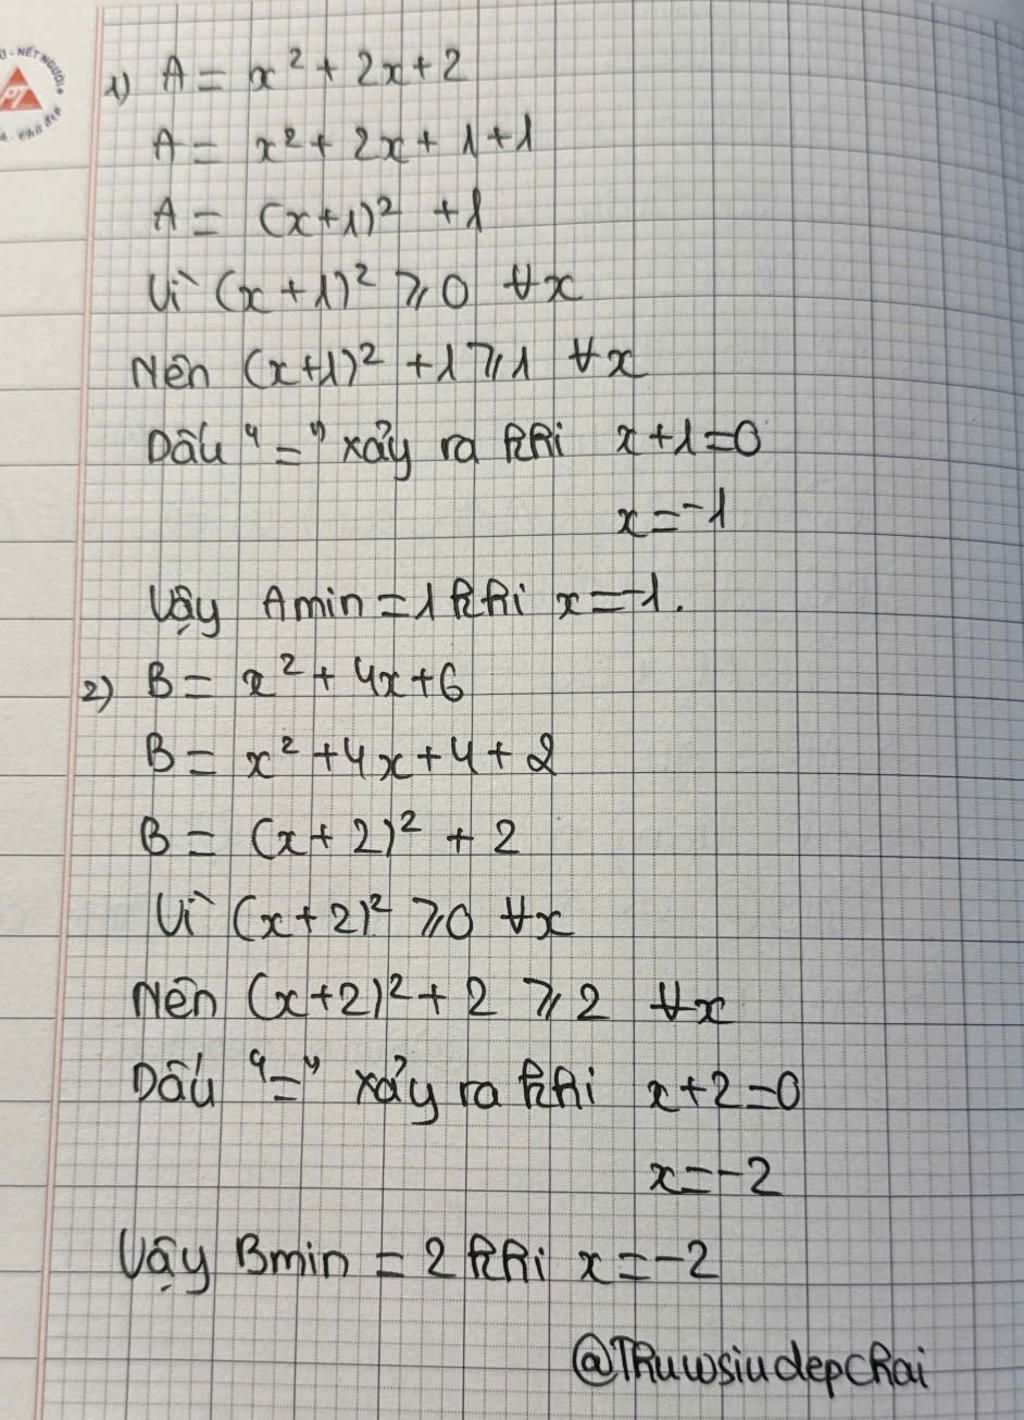 Ó - NÉT NGƯỜI
PT
1) A = x² + 2x + 2
A = x² + 2x + 1 + 1
A = (x+1)² + 1
Vì (x + 1)² ⩾ 0 ∀x
Nên (x+1)² + 1 ⩾ 1 ∀x
Dấu "=" xảy ra khi x + 1 = 0
x = -1
Vậy Amin = 1 khi x = -1.
2) B = x² + 4x + 6
B = x² + 4x + 4 + 2
B = (x + 2)² + 2
Vì (x + 2)² ⩾ 0 ∀x
Nên (x+2)² + 2 ⩾ 2 ∀x
Dấu "=" xảy ra khi x + 2 = 0
x = -2
Vậy Bmin = 2 khi x = -2
@Thuwsiudepchai